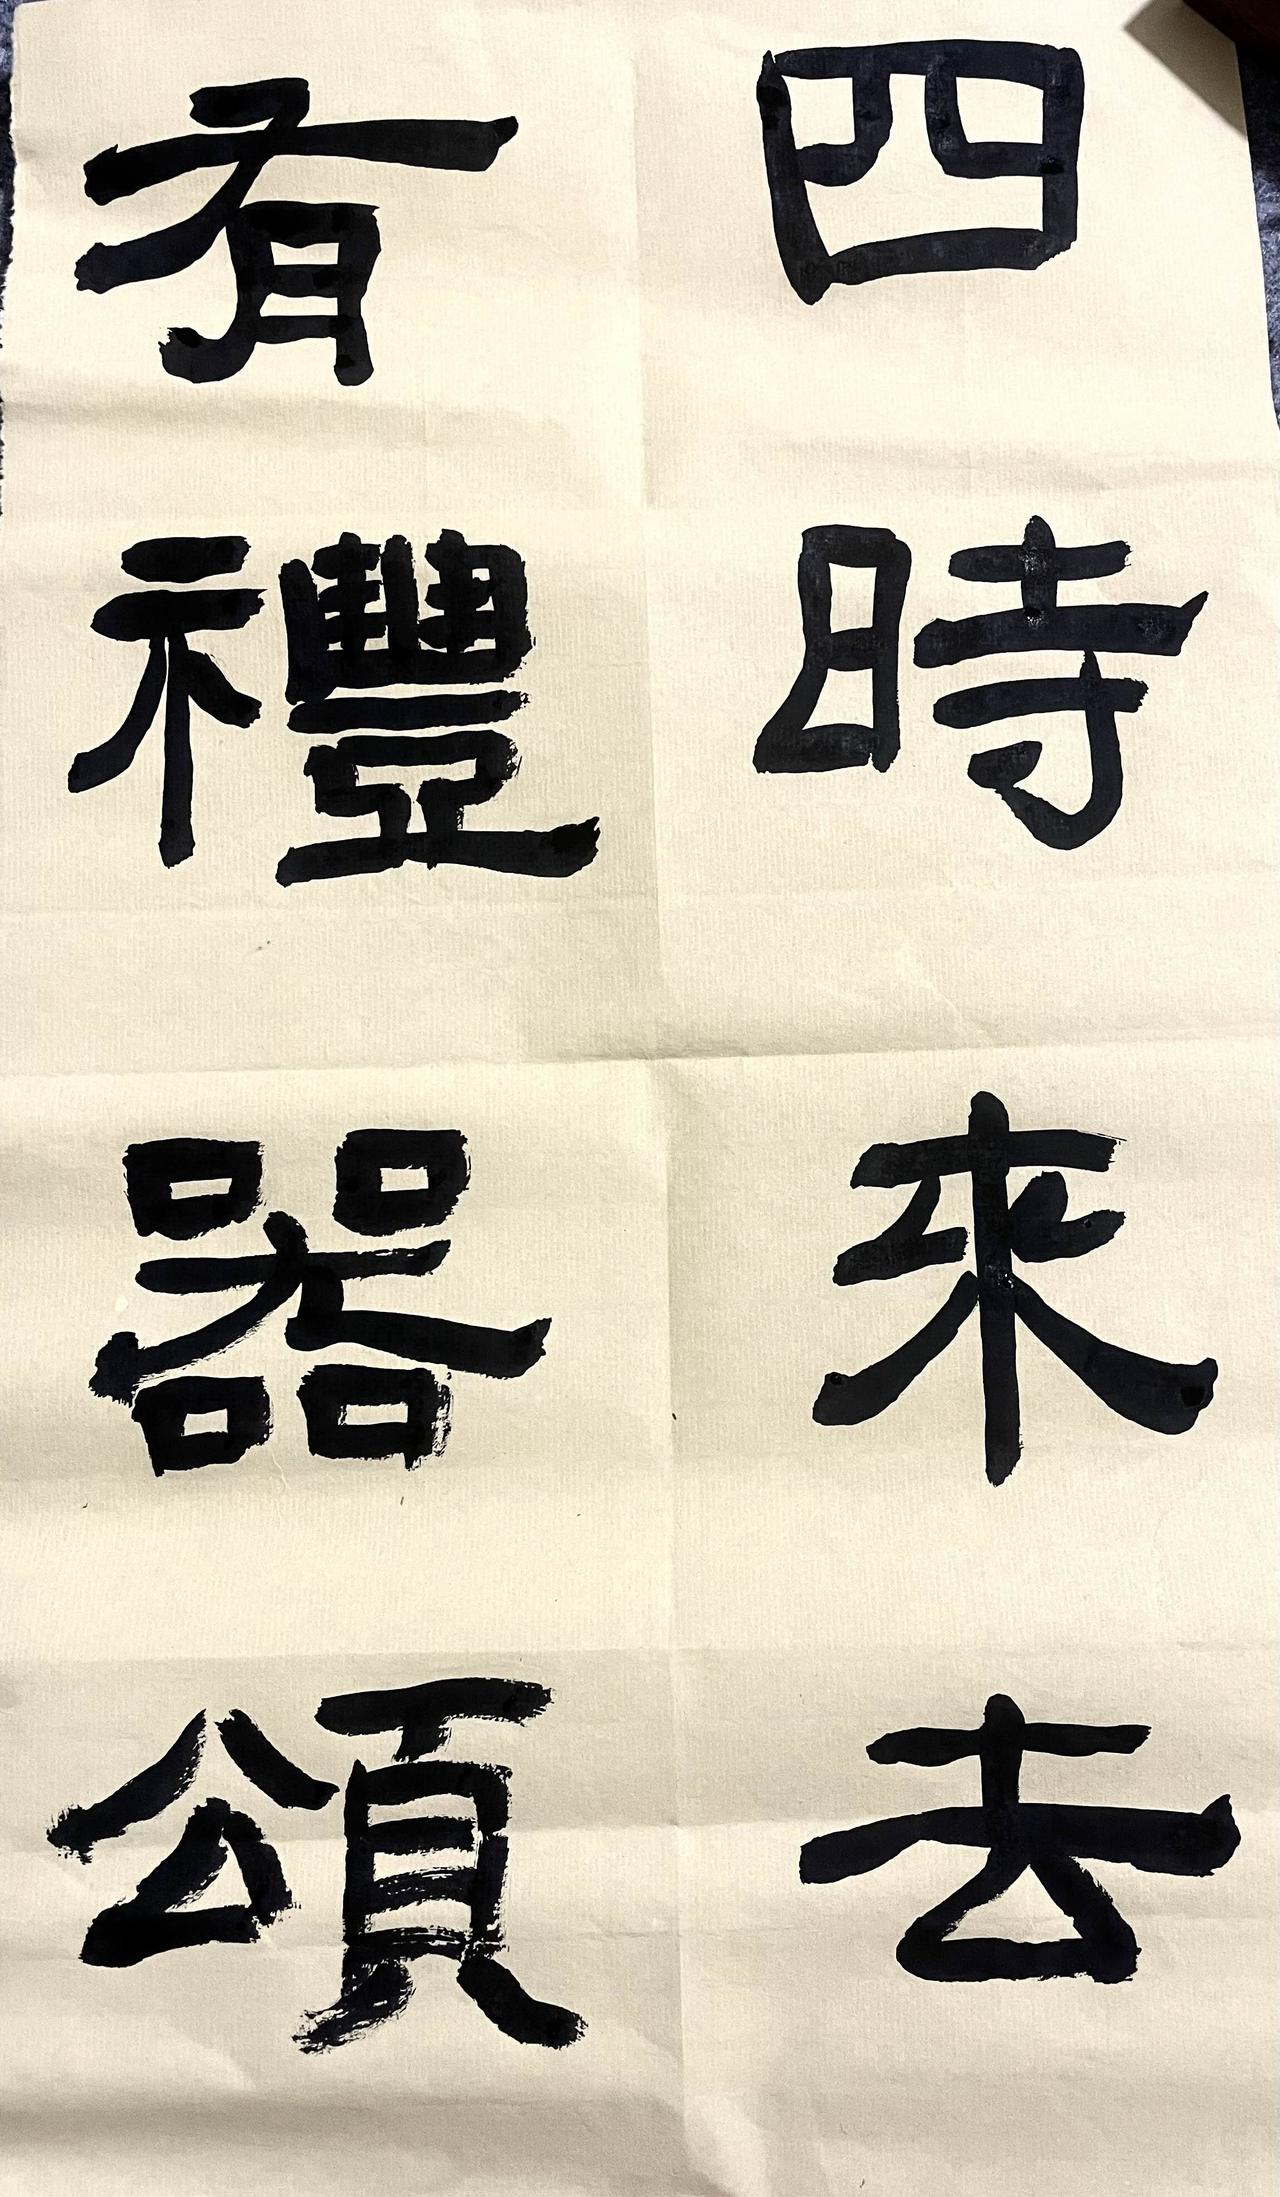 四時來去
有禮器頌